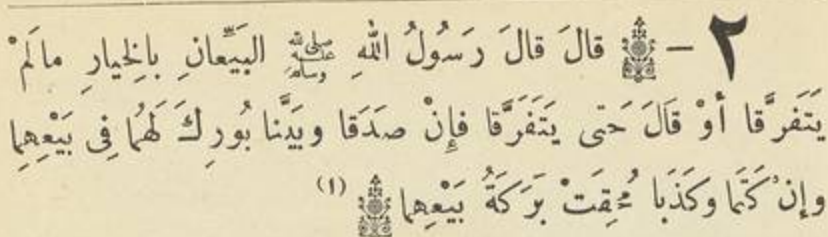 ٢ – قالَ قالَ رَسُولُ اللهِ ﷺ البَيِّعانِ بالخِيارِ مالَمْ
يَتَفرَّقا أوْ قالَ حَتى يَتَفَرَّقا فإِنْ صدَقا وبَيَّنا بُورِكَ لَهُما فِى بَيْعِهِما
وإنْ كَتَما وكَذَبا مُحِقَتْ بَرَكَةُ بَيْعِهِما (١)